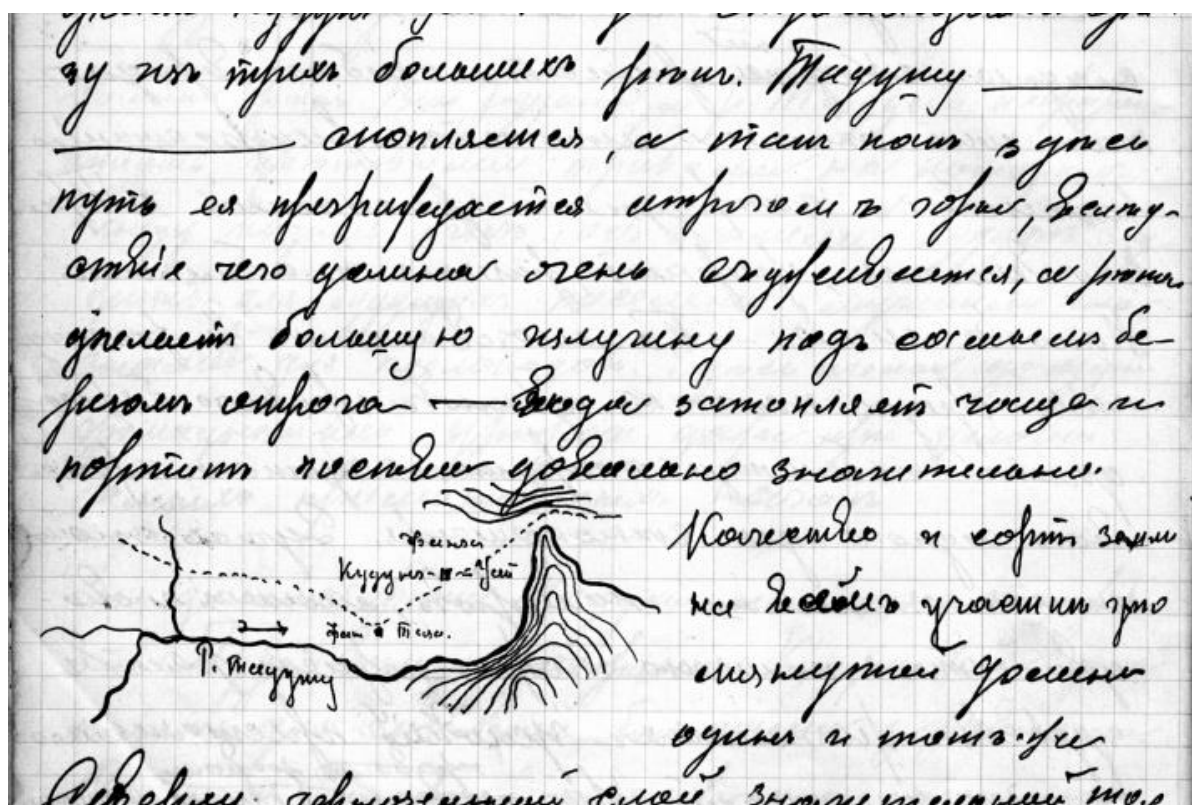 зу изъ трехъ большихъ рѣкъ. Тадушу
скопляется, а такъ какъ здѣсь
путь ея преграждается отрогомъ горы вслѣд-
ствіе чего долина очень съуживается, а рѣка
дѣлаетъ большую излучину подъ самымъ бе-
регомъ отрога — Вода затопляетъ чаще и
портитъ посѣвы довольно значительно.
фанза
Кудунъ-
фан. Таза.
Р. Тадушу
Качество и сортъ земли
на всемъ участкѣ
долины
одинъ и тотъ-же
слой